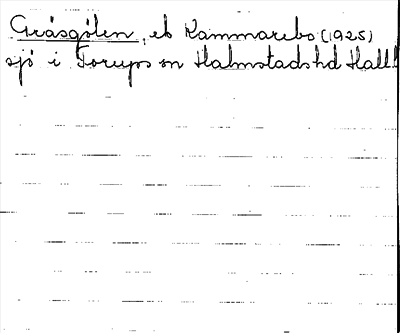 Gråsgölen, eb Kammarebo (1925)
sjö i Torups sn Halmstads hd Hall.